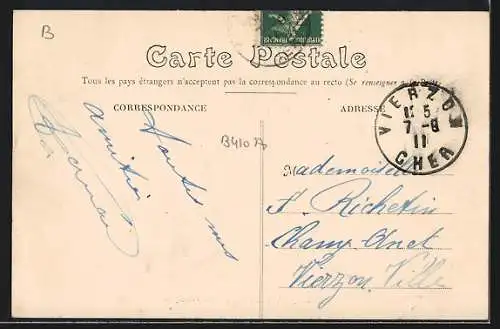 B
Carte Postale
Tous les pays étrangers n'acceptent pas la correspondance au recto (Se renseigner
CORRESPONDANCE
ADRESSE
VIERZON
11 5
7 -8
11
CHER
B410 A
Toutes mes
amitiés
Mademoiselle
F. Richetin
Champ Anet
Vierzon Ville